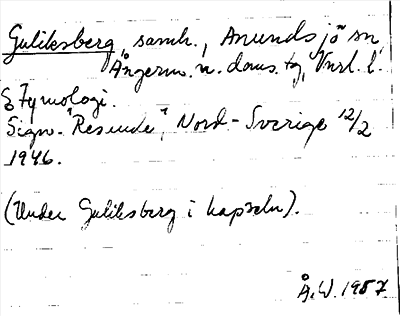 Guliksberg, samh., Anundsjö sn,
Ångerm. n. doms. tg, Vnrl. l.
Etymologi.
Sign. "Resande", Nord-Sverige 12/2
1946.
(Under Guliksberg i kapseln).
Å.W. 1957